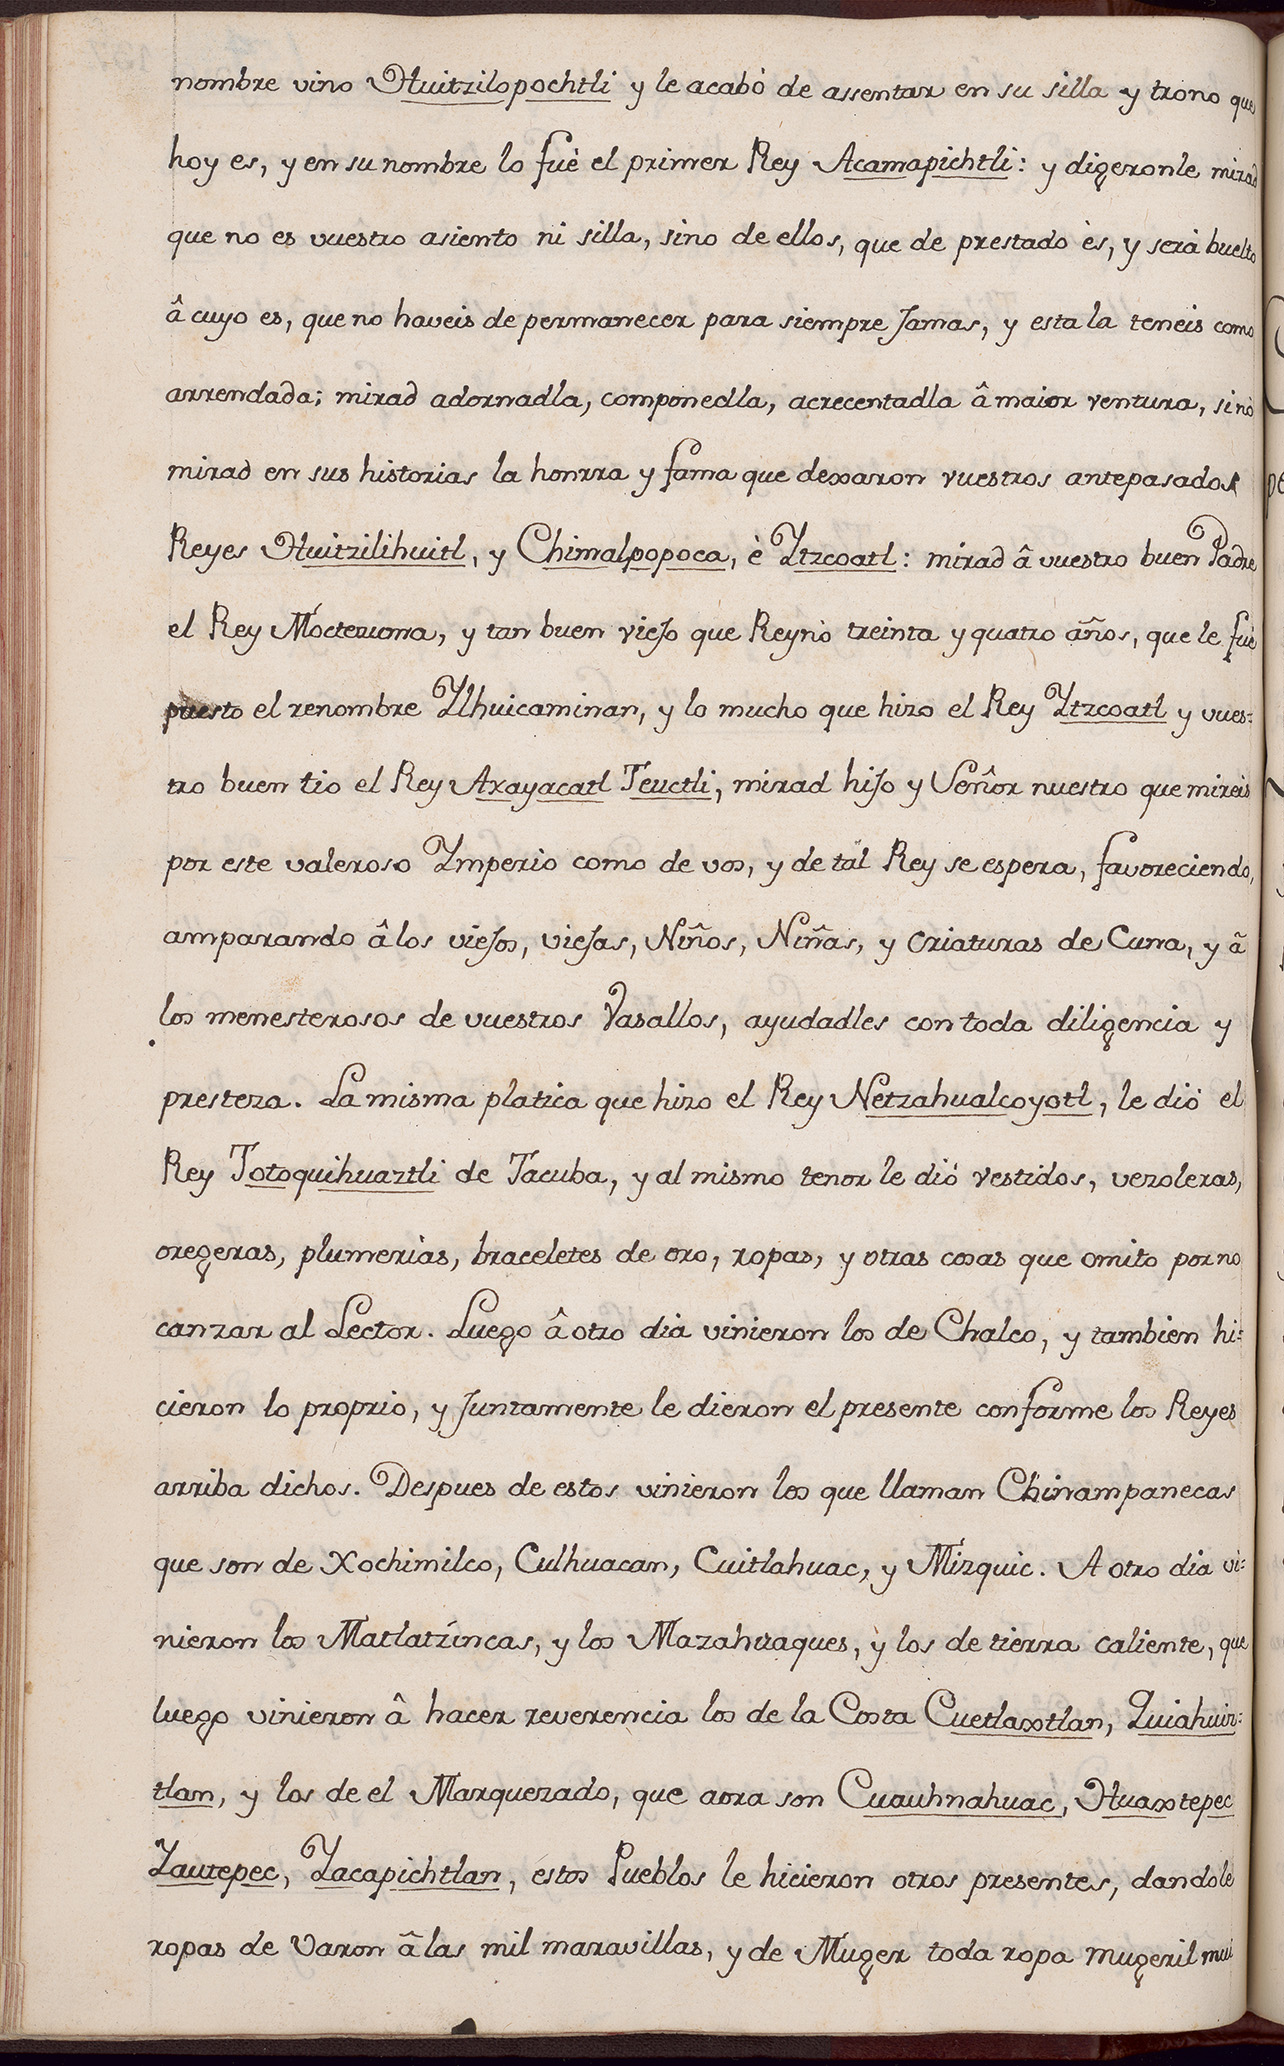 nombre vino Huitzilopochtli y le acabò de assentar en su silla y trono que
hoy es, y en su nombre lo fuè el primer Rey Acamapichtli: y digeronle mirad
que no es vuestro asiento ni silla, sino de ellos, que de prestado ès, y serà buelto
â cuyo es, que no haveis de permanecer para siempre Jamas, y esta la teneis como
arrendada; mirad adornadla, componedla, acrecentadla â maior ventura, sinò
mirad en sus historias la honrra y fama que dexaron vuestros antepasados
Reyes Huitzilihuitl, y Chimalpopoca, è Ytzcoatl: mirad â vuestro buen Padre
el Rey Moctezuma, y tan buen vieJo que Reynò treinta y quatro años, que le fuè
puesto el renombre Ylhuicaminan, y lo mucho que hizo el Rey Ytzcoatl y vues=
tro buen tio el Rey Axayacatl Teuctli, mirad hiJo y Señor nuestro que mireis
por este valeroso Ymperio como de vos, y de tal Rey se espera, favoreciendo,
amparando â los vieJos, vieJas, Niños, Niñas, y criaturas de Cuna, y â
los menesterosos de vuestros Vasallos, ayudadles con toda diligencia y
presteza. La misma platica que hizo el Rey Netzahualcoyotl, le dió el
Rey Totoquihuaztli de Tacuba, y al mismo tenor le dió vestidos, vezoleras,
oregeras, plumerias, braceletes de oro, ropas, y otras cosas que omito por no
canzar al Lector. Luego â otro dia vinieron los de Chalco, y tambien hi=
cieron lo proprio, y Juntamente le dieron el presente conforme los Reyes
arriba dichos. Despues de estos vinieron los que llaman Chinampanecas
que son de Xochimilco, Culhuacan, Cuitlahuac, y Mizquic. A otro dia vi=
nieron los Matlatzincas, y los Mazahuaques, y los de tierra caliente, que
luego vinieron â hacer reverencia los de la Costa Cuetlaxtlan, Quiahuiz=
tlan, y los de el Marquezado, que aora son Cuauhnahuac, Huaxtepec
Yautepec, Yacapichtlan, estos Pueblos le hicieron otros presentes, dandole
ropas de Varon â las mil maravillas, y de Muger toda ropa mugeril mui